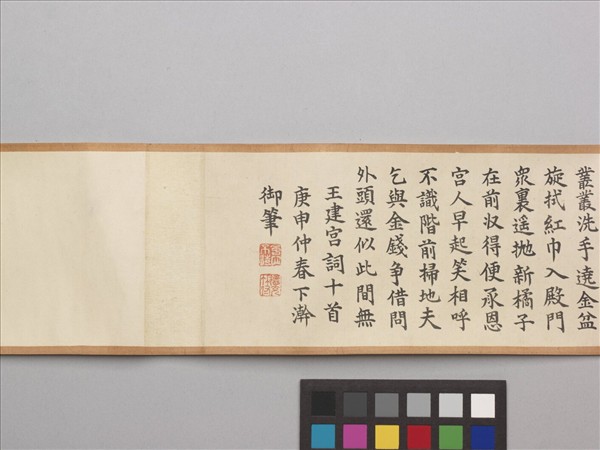 叢叢洗手遶金盆
旋拭紅巾入殿門
衆裏遙拋新橘子
在前收得便承恩
宮人早起笑相呼
不識階前掃地夫
乞與金錢争借問
外頭還似此間無
王建宮詞十首
庚申仲春下澣
御筆